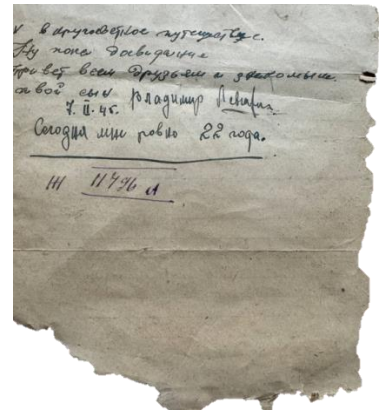 в кругосветное путешествие.
Ну пока досвидание
Привет всем друзьям и знакомым
твой сын Владимир
7.II.45.
Сегодня мне ровно 22 года.
Ш 11796 л